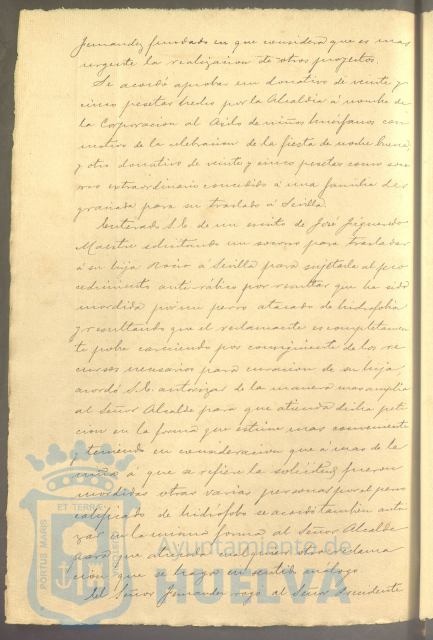 Jimenez fundado en que considera que es mas
urgente la realizacion de otros proyectos.
Se acordó aprobar un donativo de veinte y
cinco pesetas hecho por la Alcaldia á nombre de
la Corporacion al Asilo de niños huerfanos con
motivo de la celebracion de la fiesta de noche buena
y otro donativo de veinte y cinco pesetas como soco
rro extraordinario concedido á una familia des
graciada para su traslado á Sevilla.
Enterado S.E. de un escrito de José Izquierdo
Maestre solicitando un socorro para trasladar
á su hija Rocio á Sevilla para sujetarla al pro
cedimiento anti-rábico por resultar que ha sido
mordida por un perro atacado de hidrofobia
y resultando que el reclamante es completamen
te pobre careciendo por consiguiente de los re
cursos necesarios para curacion de su hija,
acordó S.E. autorizar de la manera mas amplia
al Señor Alcalde para que atienda dicha peti
cion en la forma que estime mas conveniente
y teniendo en consideracion que á mas de la
niña á que se refiere la solicitud fueron
mordidas otras varias personas por el perro
calificado de hidrofobo se acordó tambien auto
zar en la misma forma al Señor Alcalde
para que atienda cualquier otra reclama
cion que se haga en sentido análogo.
El Señor Jimenez rogó al Señor Presidente
PORTUS MARIS
ET TERRE
Ayuntamiento de
HUELVA